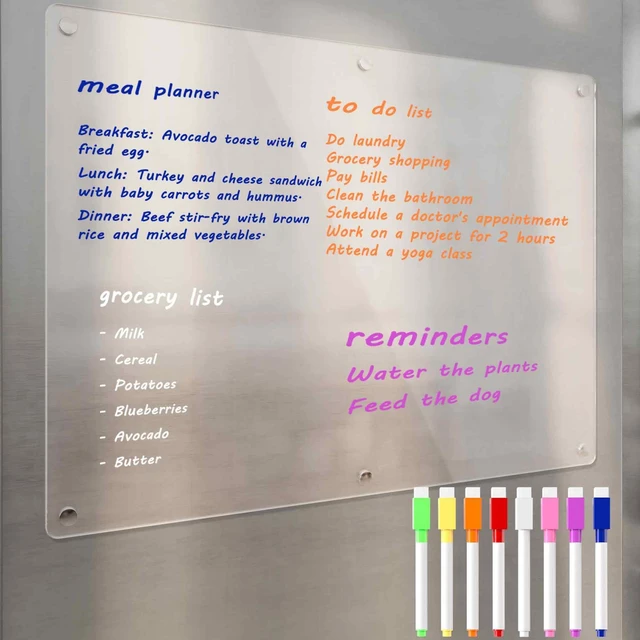 meal planner
Breakfast: Avocado toast with a
fried egg.
Lunch: Turkey and cheese sandwich
with baby carrots and hummus.
Dinner: Beef stir-fry with brown
rice and mixed vegetables.
to do list
Do laundry
Grocery shopping
Pay bills
Clean the bathroom
Schedule a doctor's appointment
Work on a project for 2 hours
Attend a yoga class
grocery list
- Milk
- Cereal
- Potatoes
- Blueberries
- Avocado
- Butter
reminders
Water the plants
Feed the dog